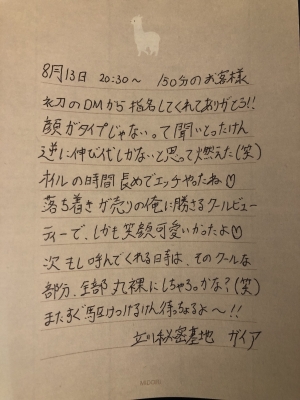 8月13日 20:30〜 150分のお客様
初のDMから指名してくれてありがとう!!
顔がタイプじゃないって聞いとったけん
逆に伸び代しかないと思って燃えた(笑)
オイルの時間長めでエッチやったね♡
落ち着きが売りの俺に勝るクールビュー
ティーで、しかも笑顔可愛いかったよ♡
次もし呼んでくれる時は、そのクールな
部分、全部丸裸にしちゃろうかな?(笑)
またすぐ駆けつけるけん待っちょるよ〜!!
立川秘密基地 ガイア
MIDORI